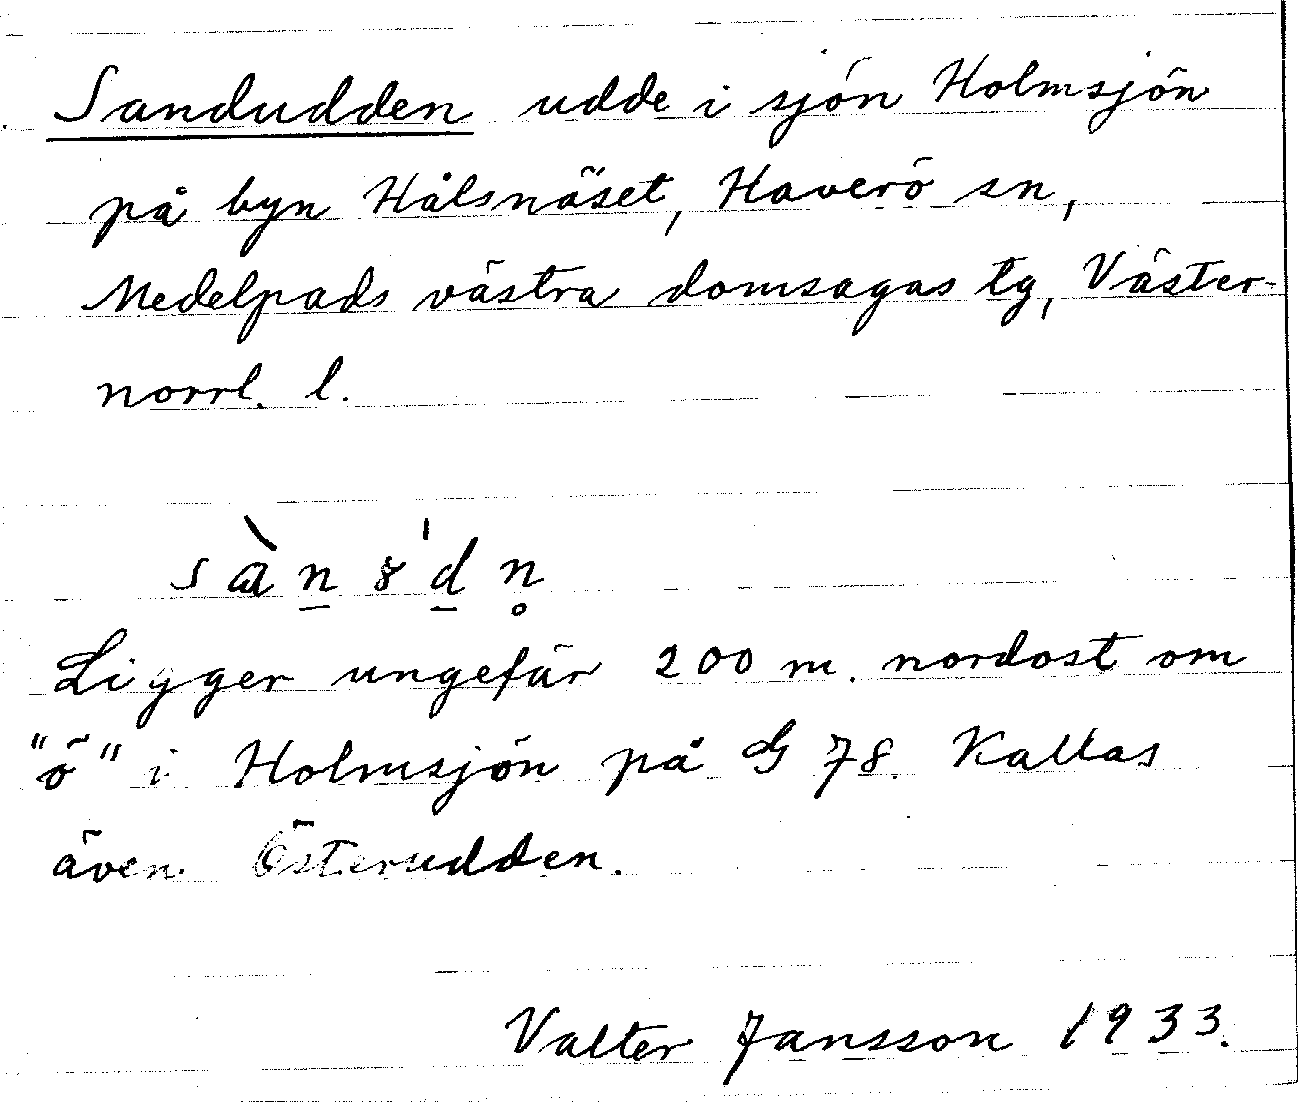 Sandudden udde i sjön Holmsjön
på byn Hålsnäset, Haverö sn,
Medelpads västra domsagas tg, Väster-
norrl. l.
Ligger ungefär 200 m. nordost om
"ö" i Holmsjön på G 78. Kallas
även Österudden.
Valter Jansson 1933.